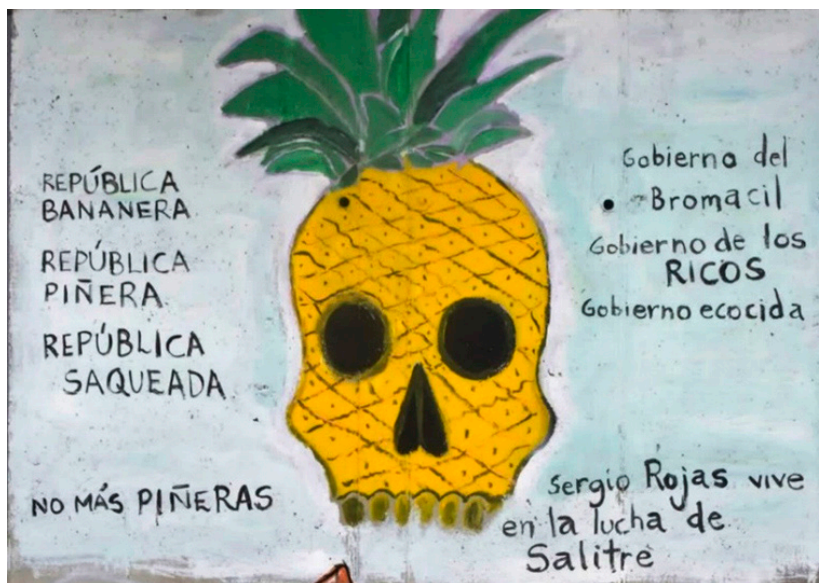 REPÚBLICA
BANANERA
REPÚBLICA
PIÑERA
REPÚBLICA
SAQUEADA
NO MÁS PIÑERAS
Gobierno del
Bromacil
Gobierno de los
RICOS
Gobierno ecocida
Sergio Rojas vive
en la lucha de
Salitre